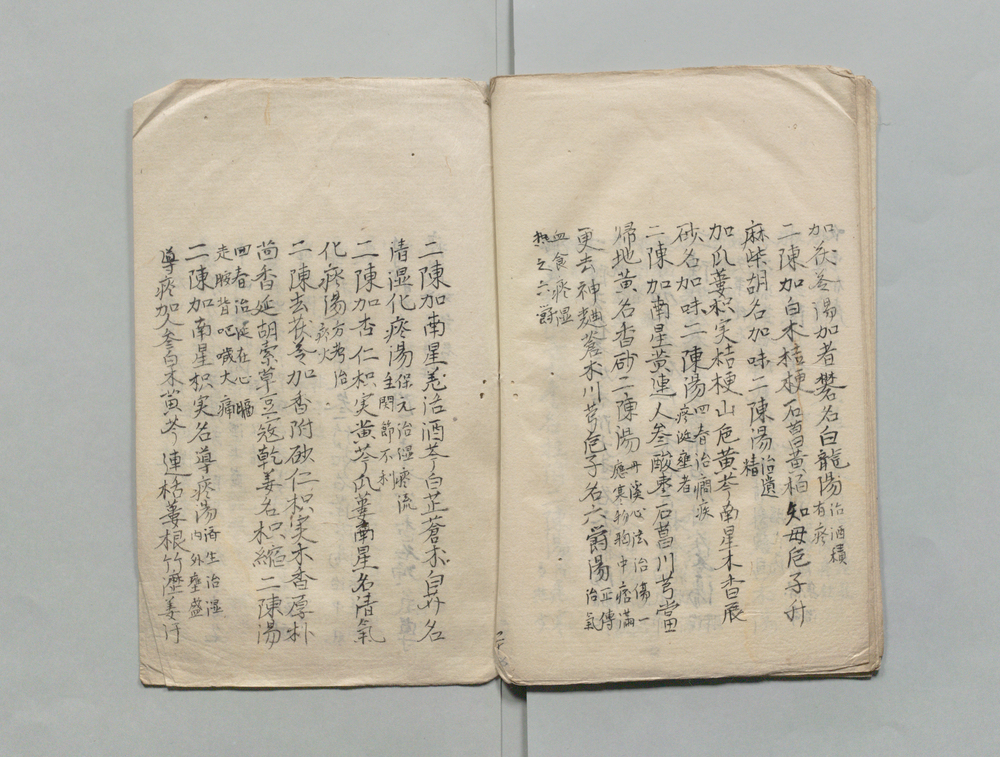 加茯苓湯加者礬名白龍湯治酒積有疼
二陳加白朮桔梗石菖黄柏知母巵子升
麻柴胡名加味二陳湯治遺精
加瓜蔞枳実桔梗山巵黄芩南星木香辰
砂名加味二陳湯回春治癇疾痰涎壅者
二陳加南星黄連人参酸棗石菖川芎當
帰地黄名香砂二陳湯丹溪心法治傷一應寒物物中痞滿
更去神麯蒼朮川芎巵子名六欝湯正傳治氣
血食痰湿
熱之六欝
二陳加南星羌活酒芩白芷蒼朮
名
清湿化痰湯保元治湿痰流主関節不利
二陳加杏仁枳実黄芩瓜蔞南星名清氣
化痰湯方考治痰火
二陳去茯苓加香附砂仁枳実木香厚朴
茴香延胡索草豆寇乾姜名枳縮二陳湯
回春治涎在心膈
走腰背呃噦大痛
二陳加南星枳実名導痰湯済生治湿内外壅盛
導痰加人参白朮黄芩連栝蔞根竹瀝姜汁